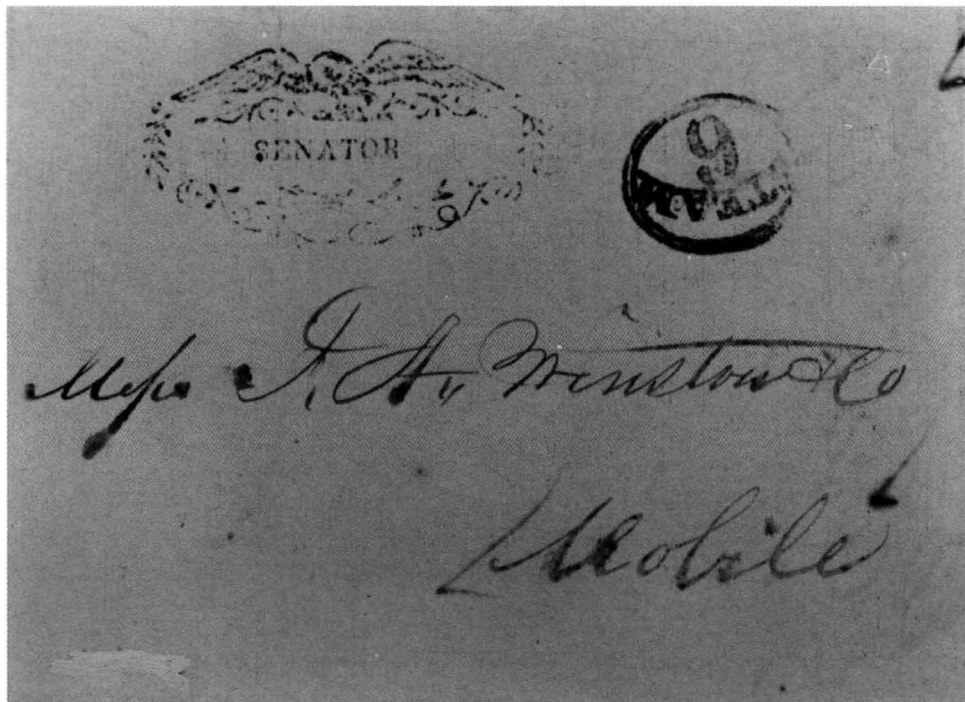 SENATOR
6
Mess J. A. Winston & Co
Mobile